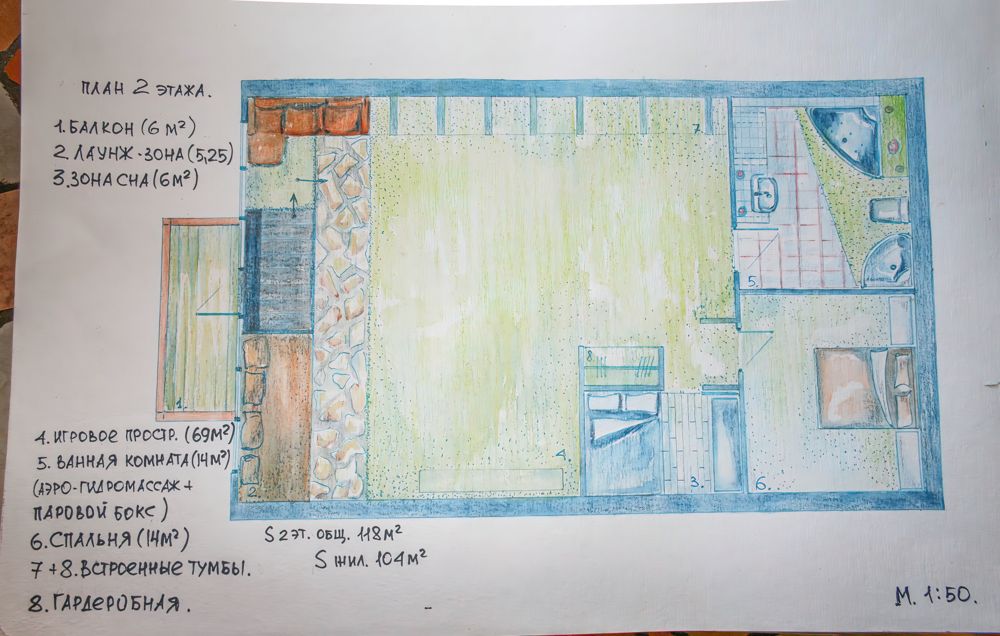 ПЛАН 2 ЭТАЖА.
1. БАЛКОН (6 м²)
2. ЛАУНЖ-ЗОНА (5,25)
3. ЗОНА СНА (6м²)
4. ИГРОВОЕ ПРОСТР. (69м²)
5. ВАННАЯ КОМНАТА (14м²)
(АЭРО-ГИДРОМАССАЖ +
ПАРОВОЙ БОКС)
6. СПАЛЬНЯ (14м²)
7 + 8. ВСТРОЕННЫЕ ТУМБЫ.
8. ГАРДЕРОБНАЯ.
7
5.
1
8.
4.
2
3.
6.
S 2 ЭТ. ОБЩ. 118м²
S ЖИЛ. 104м²
М. 1:50.